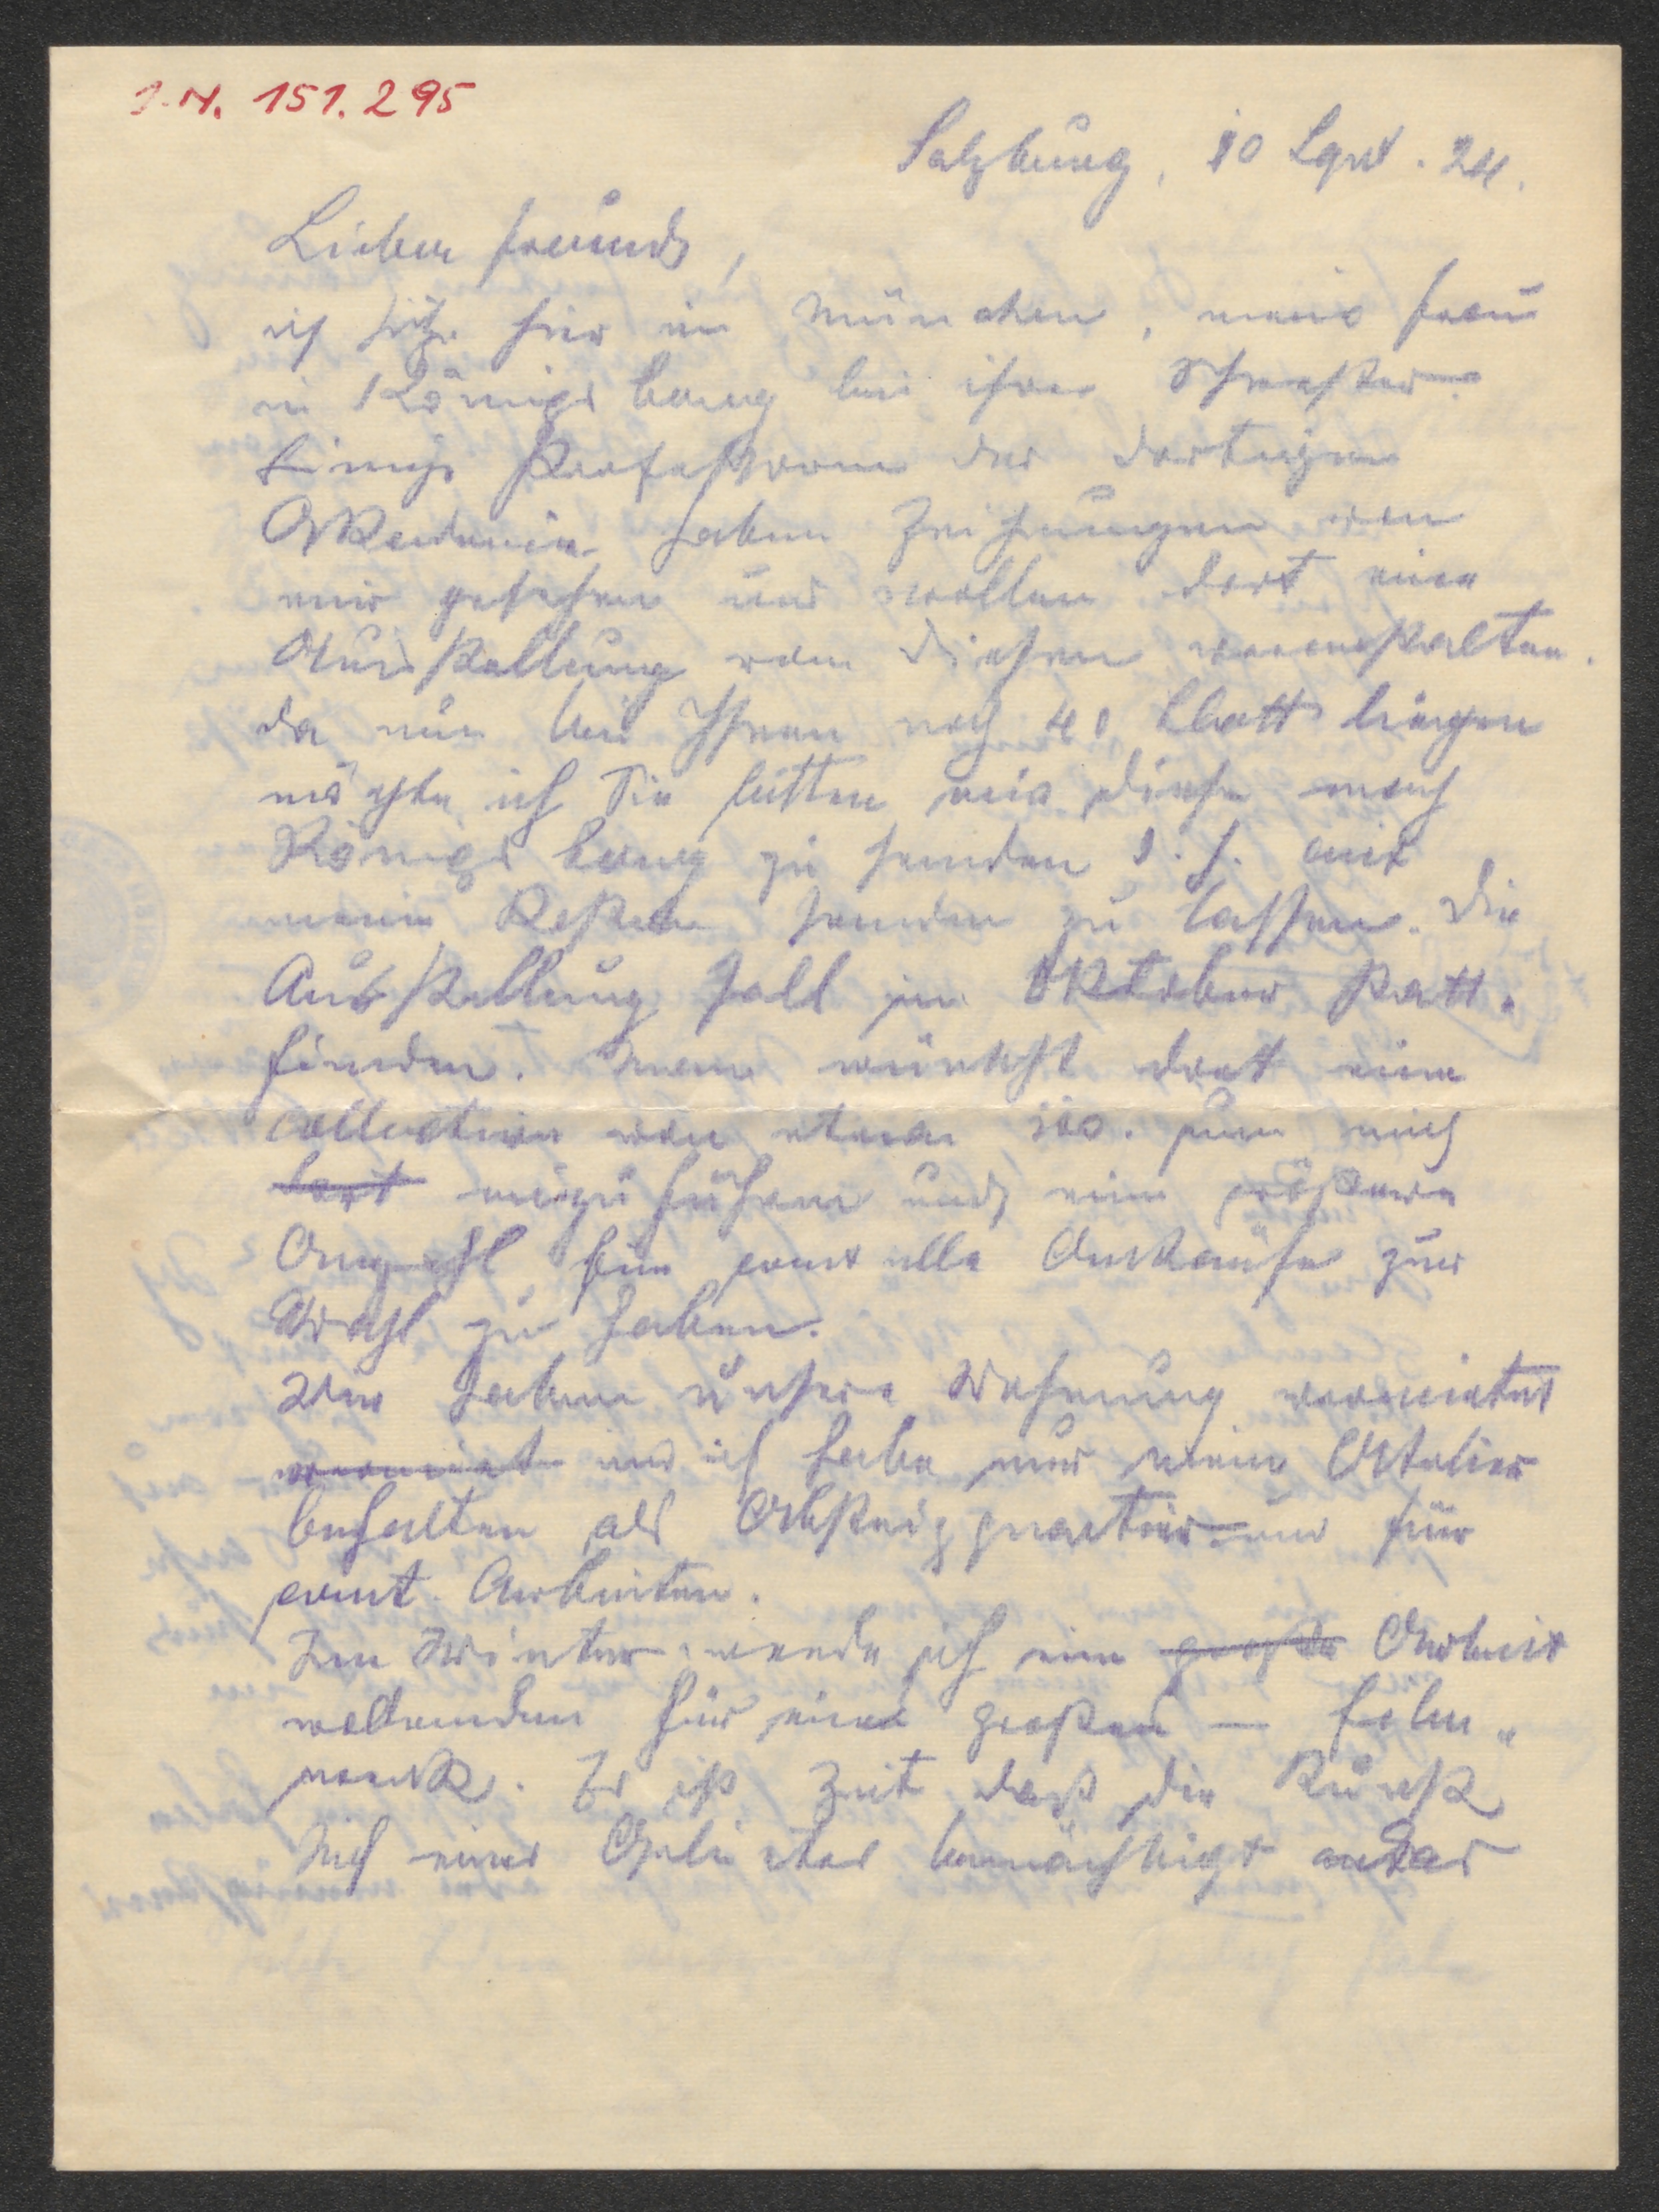 I.N. 151.295
Salzburg, 10 Sept. 24.
Lieber Freund,
ich sitze hier in München, meine Frau
in Königsberg bei ihrer Schwester.
Einige Professoren der dortigen
Akademie haben Zeichnungen von
mir gesehen und wollen dort eine
Ausstellung von diesen veranstalten.
Da nun bei Ihnen noch 40 Blatt liegen
möchte ich Sie bitten mir diese nach
Königsberg zu senden d. h. mit
senden zu lassen. Die
Ausstellung soll im Oktober statt-
finden. Man wünscht dort eine
Collection von etwa 100. um mich
dort einzuführen und eine größere
Anzahl für eventuelle Ankäufe zur
Wahl zu haben.
Wir haben unsere Wohnung vermietet
vermiet und ich habe nur mein Atelier
behalten als Absteigquartier und für
event. Arbeiten.
Im Winter werde ich eine große Arbeit
vollenden für einen großen – Film-
werk. Es ist Zeit daß die Kunst
sich eines Gebietes bemächtigt